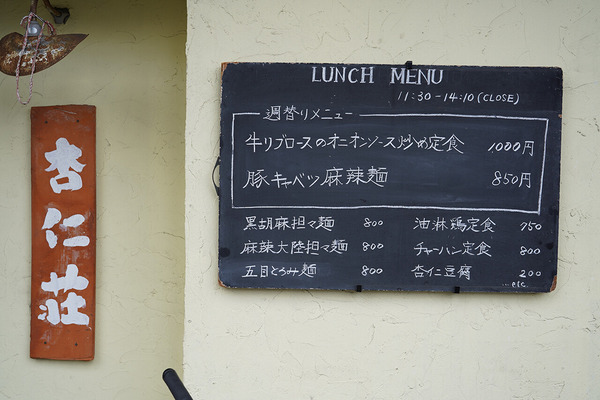 杏仁荘
LUNCH MENU
11:30-14:10 (CLOSE)
週替りメニュー
牛リブロースのオニオンソース炒め定食 1000円
豚キャベツ麻辣麺 850円
黒胡麻担々麺 800
麻辣大陸担々麺 800
五目とろみ麺 800
油淋鶏定食 750
チャーハン定食 800
杏仁豆腐 200
...etc.